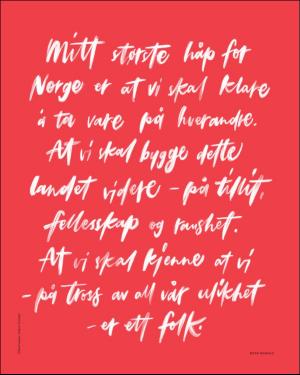 Mitt største håp for
Norge er at vi skal klare
å ta vare på hverandre.
At vi skal bygge dette
landet videre – på tillit,
fellesskap og raushet.
At vi skal kjenne at vi
– på tross av all vår ulikhet
– er ett folk.